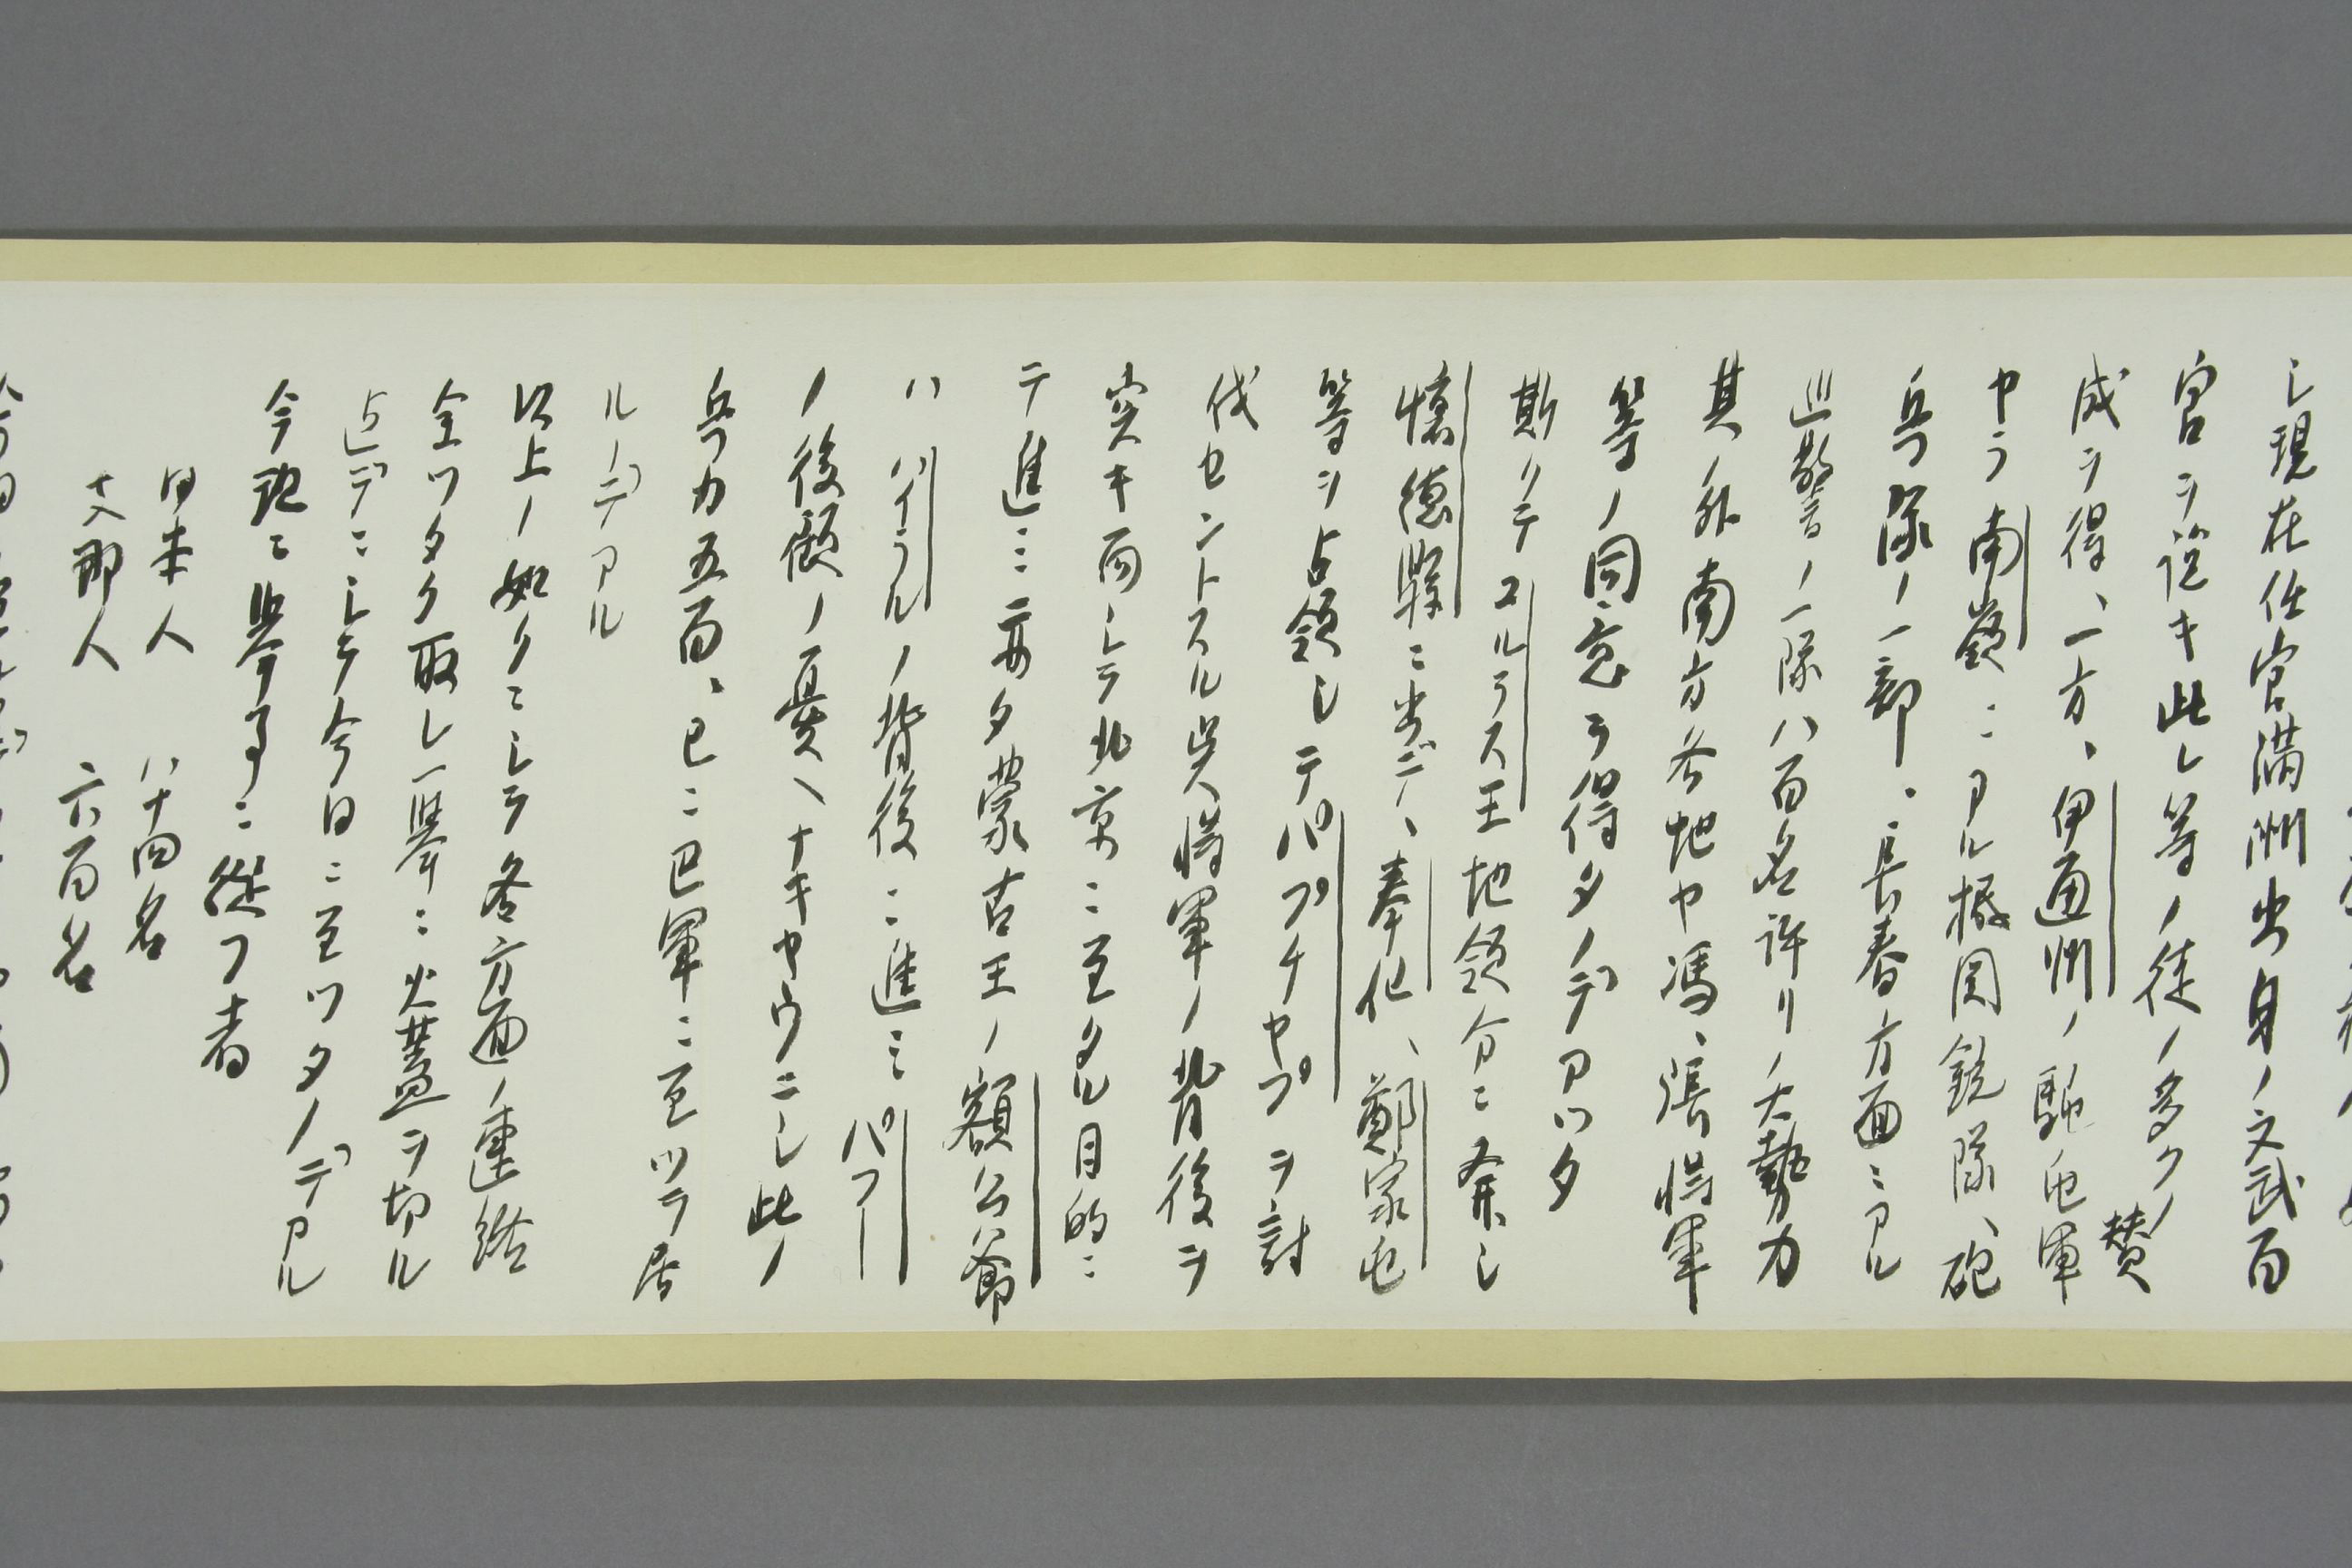 シ現在任官満洲出身ノ文武百
官ヲ説キ此レ等ノ徒ノ多クノ賛
成ヲ得、一方、伊通州ノ駐屯軍
ヤラ南嶺ニアル機関銃隊、砲
兵隊ノ一部、長春方面ニアル
巡警ノ一隊ハ百名許リノ大勢力
其外南方各地ヤ馮、張将軍
等ノ同意ヲ得タノデアツタ
斯クテコルラス王地領分ニ奔シ
懐徳縣ニ出デ、奉化、鄭家屯
等ヲ占領シテパプチヤプヲ討
伐セントスル呉将軍ノ背後ヲ
突キ而シテ北京ニ至タル目的ニ
テ進ミ亦タ蒙古王ノ額公爺
ハハイラルノ背後ニ進ミパフー
ノ後顧ノ憂ヘナキヤウニシ此ノ
兵力五百、已ニ巴軍ニ至ツテ居
ルノデアル
以上ノ如クニシテ各方面ノ連絡
全ツタク取レ一挙ニ火蓋ヲ切ル
迄デニシテ今日ニ至ツタノデアル
今現ニ挙事ニ從フ者
日本人 八十四名
支那人 六百名